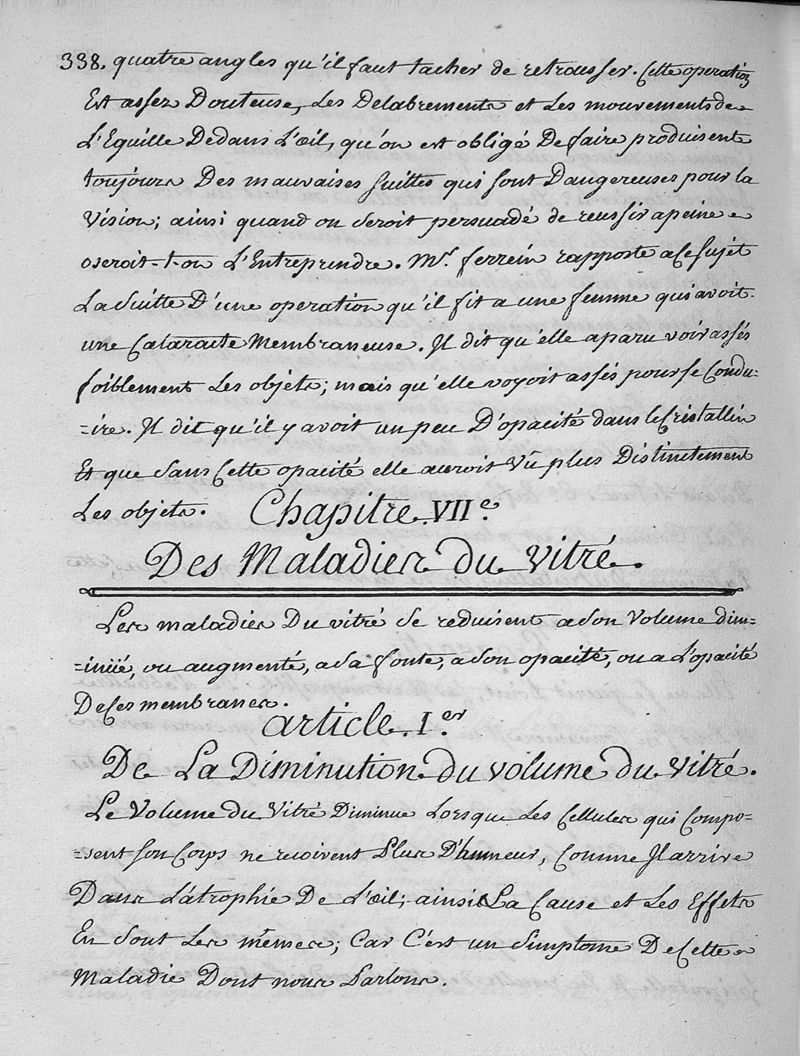 338. quatre angles qu'il faut tacher de retrousser. Cette operation
Est assez Douteuse, Les Delabrements et Les mouvements de
L'Equille Dedans L'œil, qu'on est obligé De faire produisent
toujours Des mauvaises suittes qui sont Dangereuses pour la
Vision; ainsi quand on seroit persuadé de reussir a peine
oseroit-t-on L'Entreprendre. Mr. ferrein rapporte a Ce sujet
La suitte D'une operation qu'il fit a une femme qui avoit
une Cataracte Membraneuse. Il dit qu'elle a paru voir assés
foiblement Les objets; mais qu'elle voyoit assés pour se Condu-
-ire. Il dit qu'il y avoit un peu D'opacité dans le Cristallin
Et que sans Cette opacité elle auroit Vû plus Distinctement
Les objets.
Chapitre VIIe
Des Maladies du Vitré.
Les maladies Du vitré se reduisent a son Volume dim-
-inüé, ou augmenté, a sa fonte, a son opacité, ou a L'opacité
De Ces membranes.
article Ier
De La Diminution du volume du Vitré.
Le Volume du Vitré Diminue Lorsque Les Cellules qui Compo-
-sent son Corps ne recoivent Plus D'humeur, Comme Il arrive
Dans L'atrophie De L'œil; ainsi La Cause et Les Effets
En sont Les mêmes; Car C'est un simptome De Cette
Maladie Dont nous Parlons.